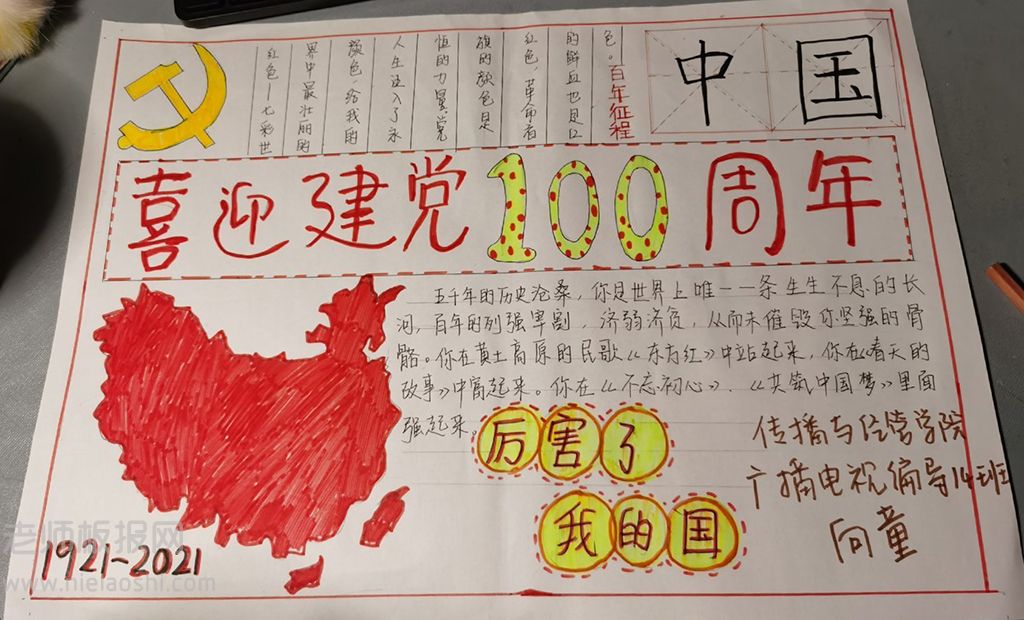 红色一七彩世
界中最壮丽的
颜色,给我的
人生注入了永
恒的力量党
旗的颜色是
红色,革命者
的鲜血也是红
色。百年征程
中国
喜迎建党100周年
五千年的历史沧桑,你是世界上唯一一条生生不息的长
河,百年的列强宰割,济弱济贫,从而未催毁你坚强的骨
骼。你在黄土高原的民歌《东方红》中站起来,你在《春天的
故事》中富起来。你在《不忘初心》、《共筑中国梦》里面
强起来。
厉害了
我的国
传播与经管学院
广播电视编导14班
向童
1921-2021
老师板报网
www.nielaoshi.com